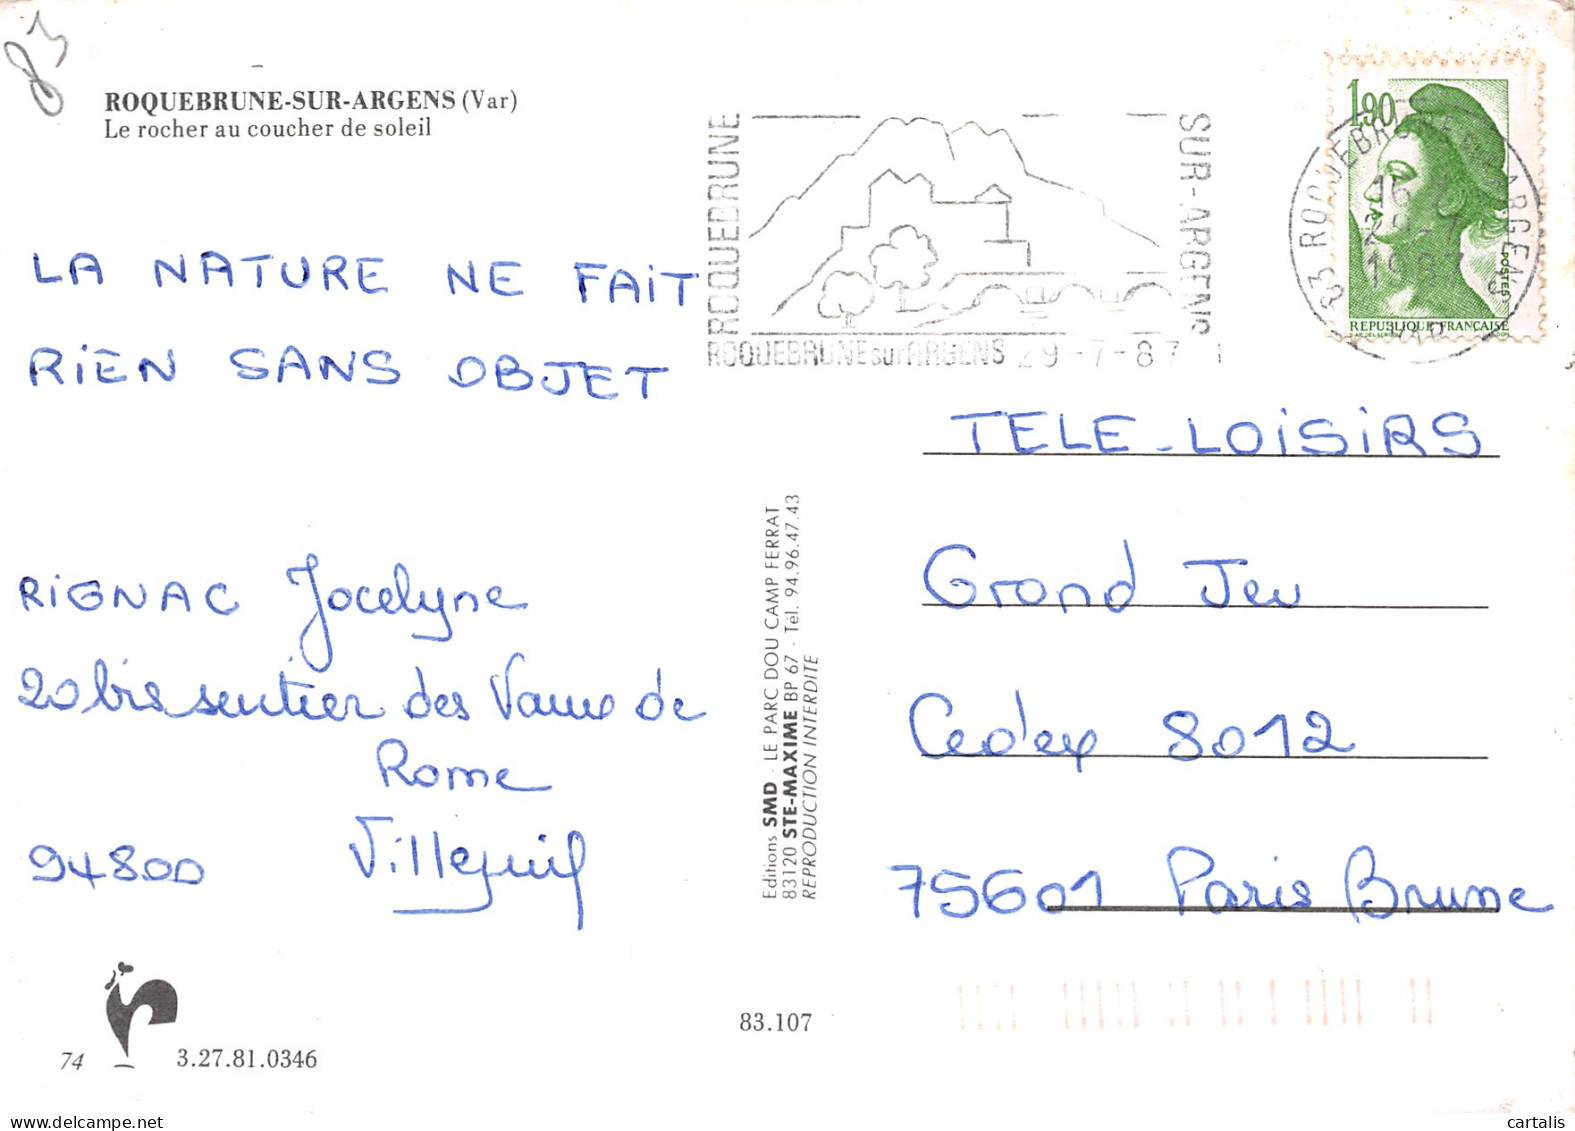 83
ROQUEBRUNE-SUR-ARGENS (Var)
Le rocher au coucher de soleil
ROQUEBRUNE
SUR-ARGENS
ROQUEBRUNE sur ARGENS 29-7-87
1,90
POSTES
REPUBLIQUE FRANÇAISE
83 ROQUEBRUNE S/ ARGENS
VAR
16 H
29-7
1987
LA NATURE NE FAIT
RIEN SANS OBJET
RIGNAC Jocelyne
20 bis sentier des Vaux de
Rome
94800 Villejuif
TELE-LOISIRS
Grand Jeu
Cedex 8012
75601 Paris Brune
Editions SMD - LE PARC DOU CAMP FERRAT
83120 STE-MAXIME BP 67 - Tél. 94.96.47.43
REPRODUCTION INTERDITE
74
3.27.81.0346
83.107
delcampe.net
cartalis